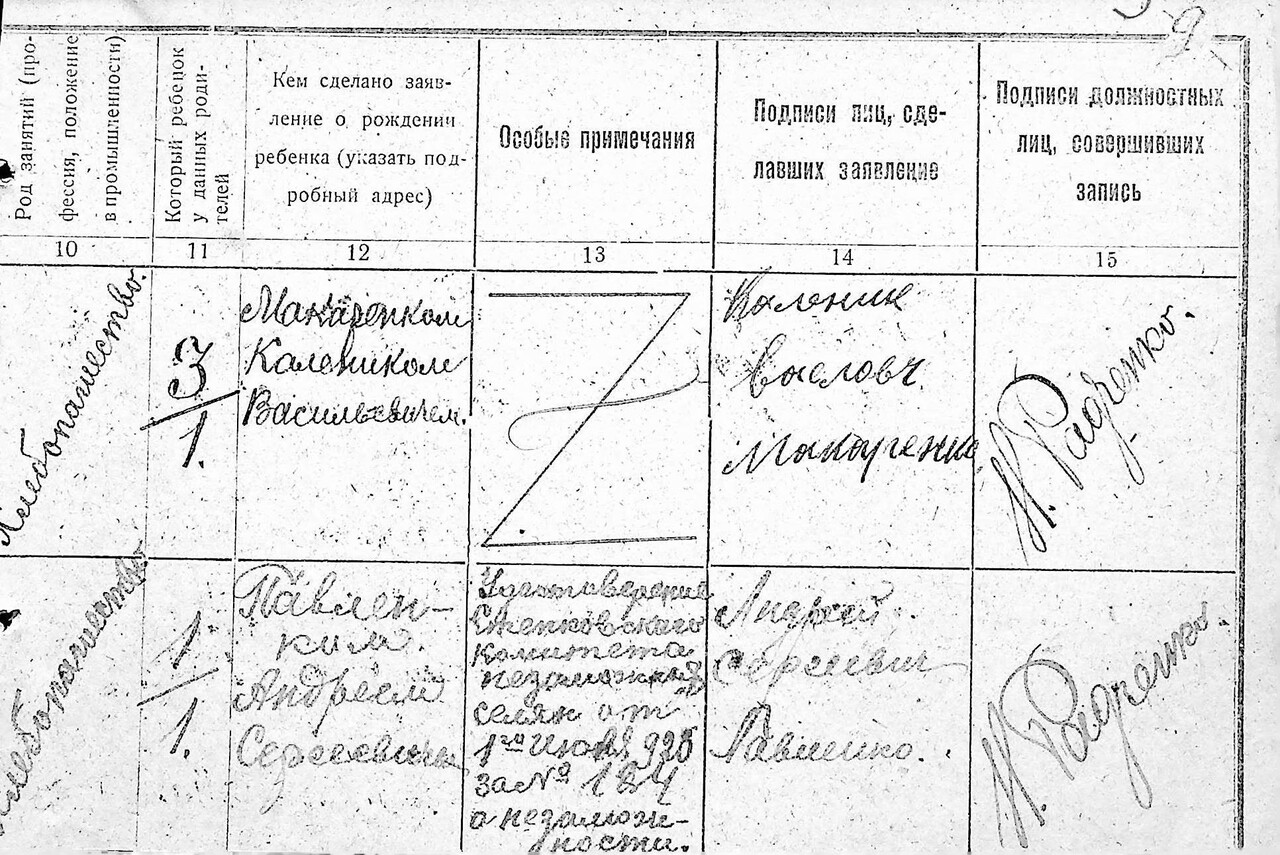 9
Род занятий (про-
фессия, положение
в промышленности)
Который ребенок
у данных роди-
телей
Кем сделано заяв-
ление о рождении
ребенка (указать под-
робный адрес)
Особые примечания
Подписи лиц, сде-
лавших заявление
Подписи должностных
лиц, совершивших
запись
10
11
12
13
14
15
Хлебопашество.
3
1.
Макаренком
Калеником
Васильевичем.
Каленик
Васловч
Макаренко
Н. Радченко.
Хлебопашество
1.
1.
Павлен-
ким.
Андреем
Сергеевичем
Удостоверение
комитета
незаможных
селян от
1го Июля 925
за № 184
о незамож-
ности.
Андрей
Сергеевич
Павленко.
Н. Радченко.